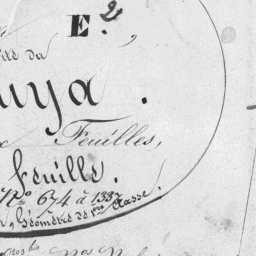 E. 2,
dite du
uya.
x Feuilles,
feuille.
N° 674 à 1337
Géomètre de 1re Classe.